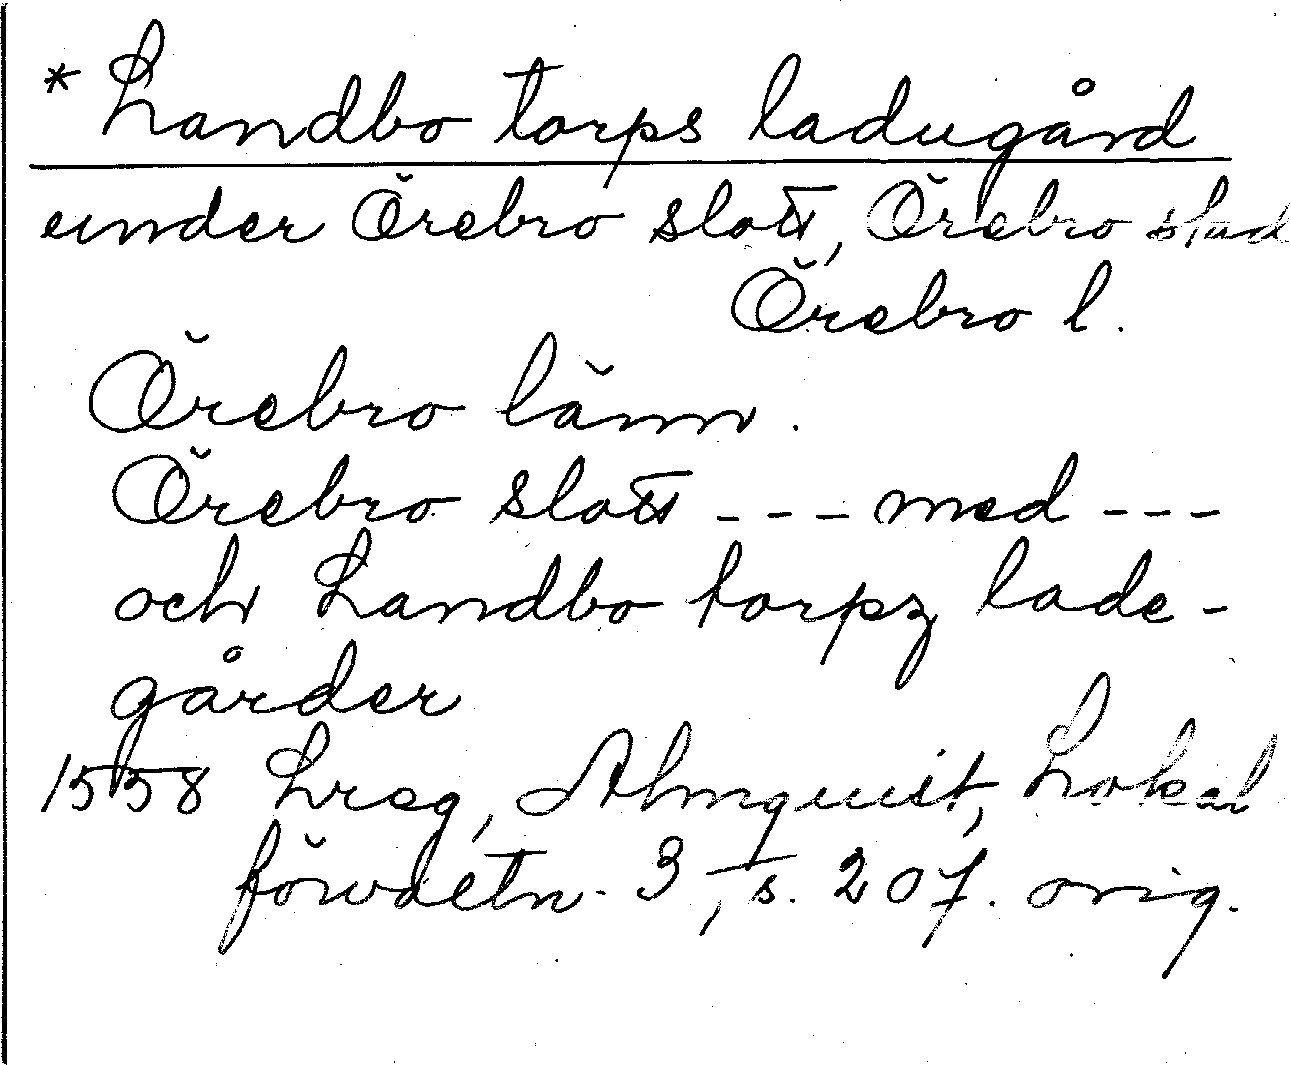 * Landbo torps ladugård
under Örebro slott, Örebro stad
Örebro l.
Örebro länn.
Örebro slott --- med ---
och Landbo torpz lade-
gårder
1558 Lreg, Almquist, Lokal
förvaltn. 3, s. 207. orig.